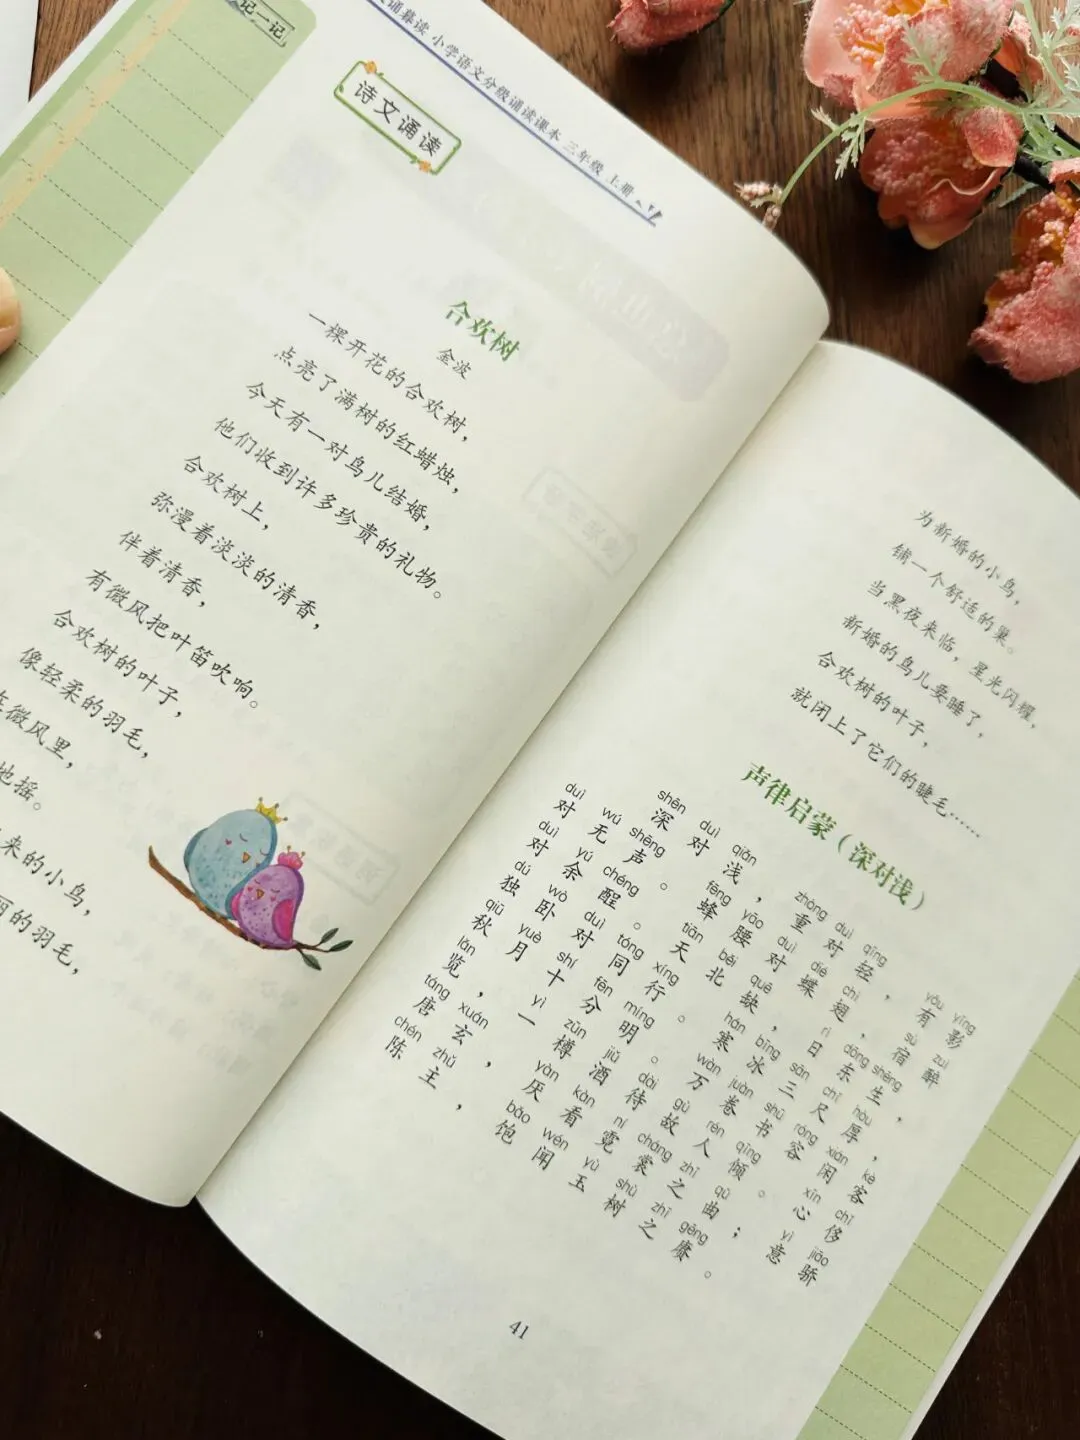 记一记
诵暮读 小学语文分级诵读课本 三年级 上册
诗文诵读
合欢树
金波
一棵开花的合欢树，
点亮了满树的红蜡烛，
今天有一对鸟儿结婚，
他们收到许多珍贵的礼物。
合欢树上，
弥漫着淡淡的清香，
伴着清香，
有微风把叶笛吹响。
合欢树的叶子，
像轻柔的羽毛，
微风里，
地摇。
来的小鸟，
丽的羽毛，
为新婚的小鸟，
铺一个舒适的巢。
当黑夜来临，星光闪耀，
新婚的鸟儿要睡了，
合欢树的叶子，
就闭上了它们的睫毛……
声律启蒙（深对浅）
shēn duì qiǎn zhòng duì qīng yǒu yǐng
深对浅，重对轻，有影
duì wú shēng fēng yāo duì dié chì sù zuì
对无声。蜂腰对蝶翅，宿醉
duì yú chéng tiān běi quē rì dōng shēng
对余酲。天北缺，日东生，
dú wò duì tóng xíng hán bīng sān chǐ hòu
独卧对同行。寒冰三尺厚，
qiū yuè shí fēn míng wàn juàn shū róng xián kè
秋月十分明。万卷书容闲客
lǎn yì zūn jiǔ dài gù rén qīng xīn chǐ
览，一樽酒待故人倾。心侈
táng xuán yàn kàn ní cháng zhī qǔ yì jiāo
唐玄，厌看霓裳之曲；意骄
chén zhǔ bǎo wén yù shù zhī gēng
陈主，饱闻玉树之赓。
41